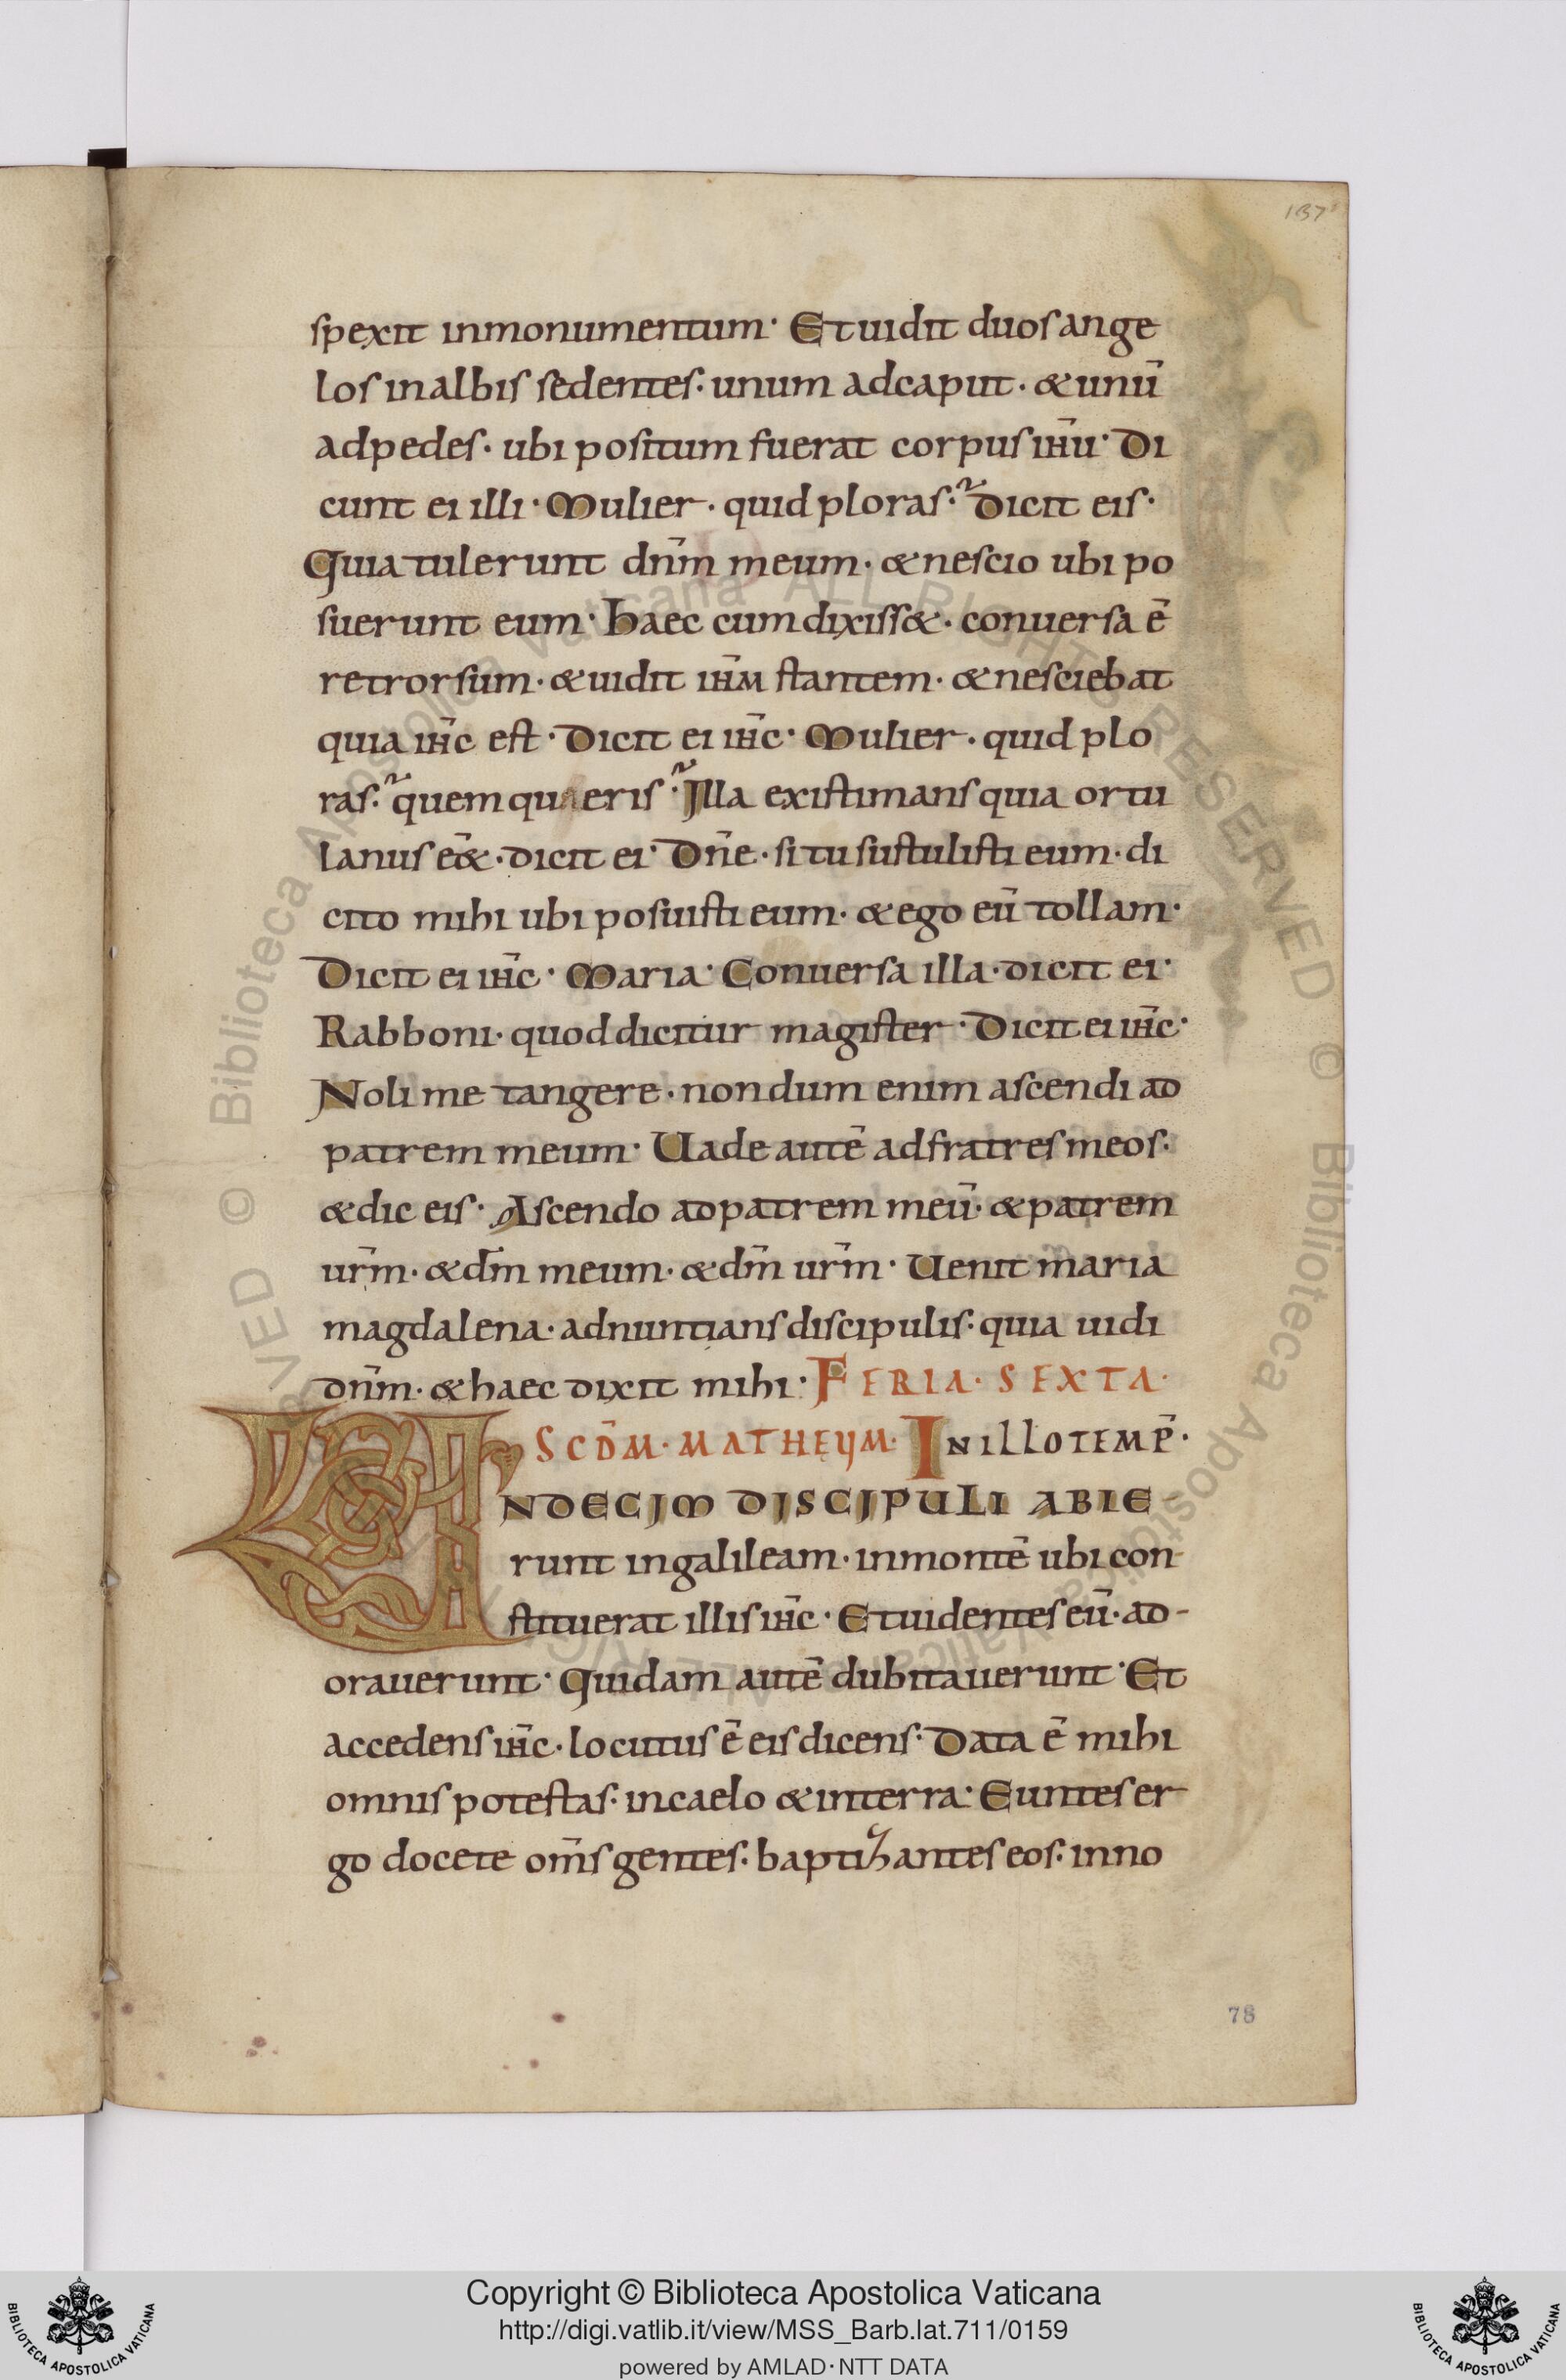 137
spexit inmonumentum· Et uidit duos ange
los inalbis sedentes· unum adcaput· & unū
adpedes· ubi positum fuerat corpus ih̄u· Di
cunt ei illi· Mulier· quid ploras·? dicit eis·
Quia tulerunt dn̄m meum· & nescio ubi po
suerunt eum· haec cum dixiss&· conuersa ē
retrorsum· & uidit ih̄m stantem· & nesciebat
quia ih̄c est· Dicit ei ih̄c· Mulier· quid plo
ras·? quem quaeris·? Illa existimans quia ortu
lanus eē&· dicit ei· Dn̄e· si tu sustulisti eum· di
cito mihi ubi posuisti eum· & ego eū tollam·
Dicit ei ih̄c· Maria· Conuersa illa· dicit ei·
Rabboni· quod dicitur magister· Dicit ei ih̄c·
Noli me tangere· nondum enim ascendi ad
patrem meum· Uade autē ad fratres meos·
& dic eis· Ascendo ad patrem meū· & patrem
ur̄m· & dm̄ meum· & dm̄ ur̄m· Uenit maria
magdalena· adnuntians discipulis· quia uidi
dn̄m· & haec dixit mihi· FERIA· SEXTA·
SCD̄M· MATHEYM· IN ILLO TEMP̄·
UNDECIM DISCIPULI ABIE-
runt ingalileam· inmontē ubi con-
stituerat illis ih̄c· Et uidentes eū· ad-
orauerunt· Quidam autē dubitauerunt· Et
accedens ih̄c· locutus ē eis dicens· Data ē mihi
omnis potestas· incaelo & interra· Euntes er-
go docete om̄s gentes· baptizantes eos· inno
78
© Biblioteca Apostolica Vaticana ALL RIGHTS RESERVED © Biblioteca Apostolica Vaticana ALL RIGHTS RESERVED
Copyright © Biblioteca Apostolica Vaticana
http://digi.vatlib.it/view/MSS_Barb.lat.711/0159
powered by AMLAD·NTT DATA
BIBLIOTECA APOSTOLICA VATICANA
BIBLIOTECA APOSTOLICA VATICANA